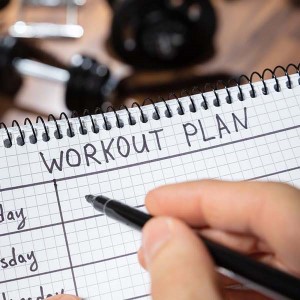 WORKOUT PLAN
day
sday